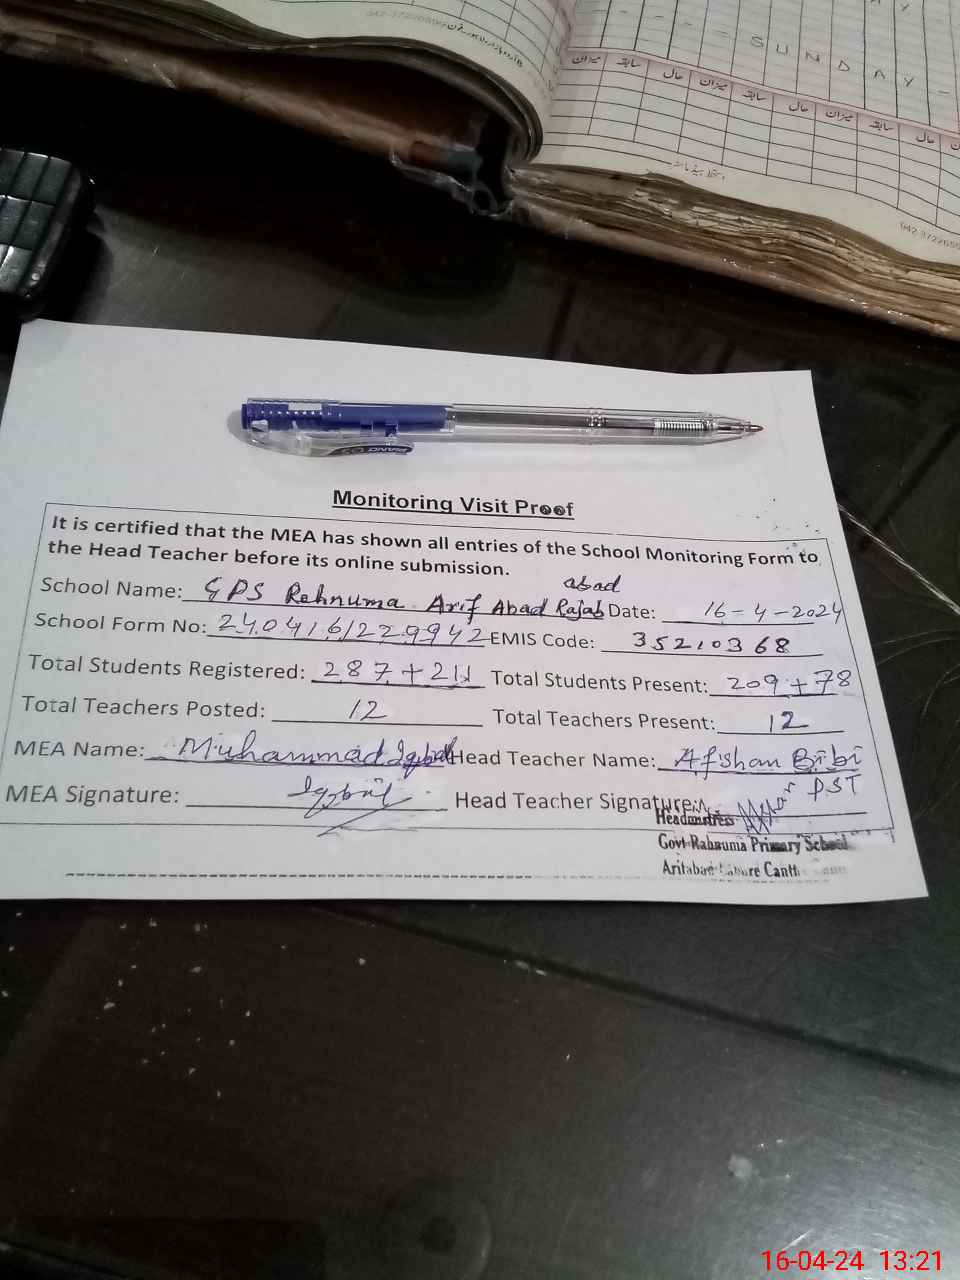 SUNDAY
میزان سابقہ حال میزان سابقہ حال میزان سابقہ حال
PIANO
Monitoring Visit Proof
It is certified that the MEA has shown all entries of the School Monitoring Form to
the Head Teacher before its online submission.
abad
School Name: GPS Rehnuma Arif Abad Rajab Date: 16-4-2024
School Form No: 2404161229942 EMIS Code: 35210368
Total Students Registered: 287+211 Total Students Present: 209+78
Total Teachers Posted: 12 Total Teachers Present: 12
MEA Name: Muhammad Iqbal Head Teacher Name: Afshan Bibi
PST
MEA Signature: Iqbal Head Teacher Signature:
Headmistress
Govt Rahnuma Primary School
Arifabad Lahore Cantt
16-04-24 13:21